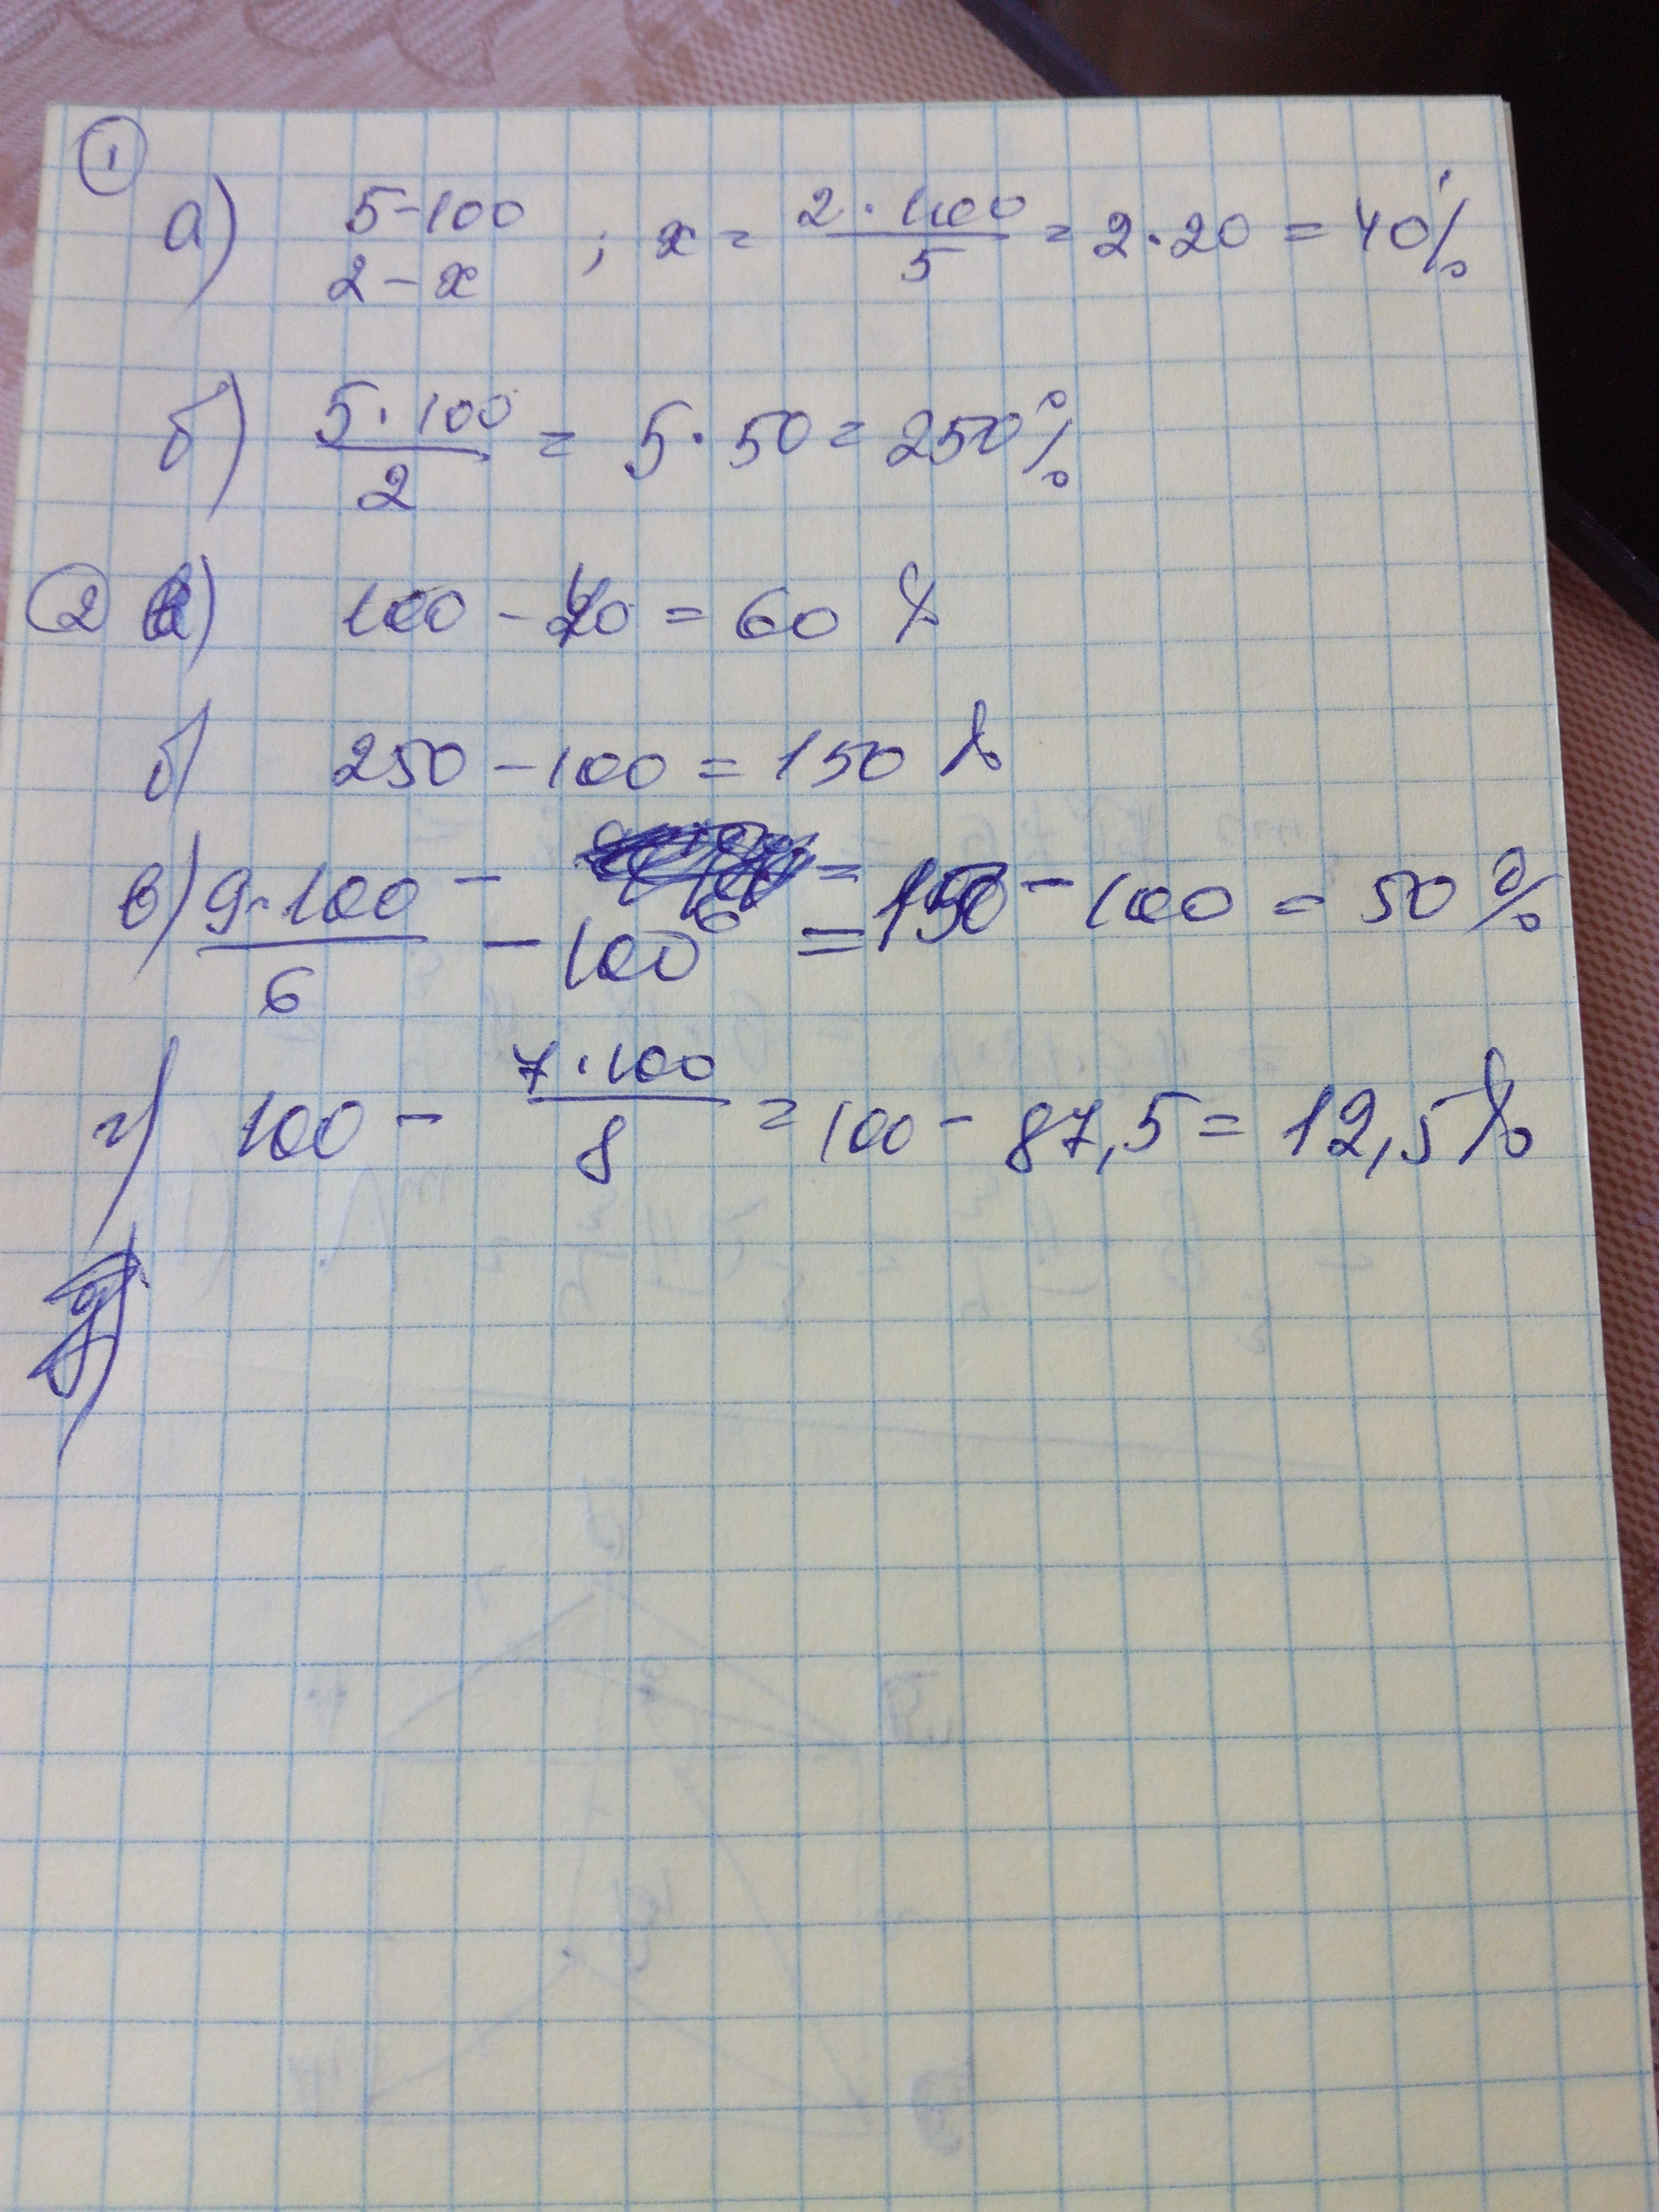 1
а) 5-100 ; x = 2·100/5 = 2·20 = 40%
2-x
б) 5·100/2 = 5·50 = 250%
2 а) 100 - 40 = 60 %
б) 250 - 100 = 150 %
в) 9·100/6 - 100 = 150 - 100 = 50 %
г) 100 - 7·100/8 = 100 - 87,5 = 12,5%